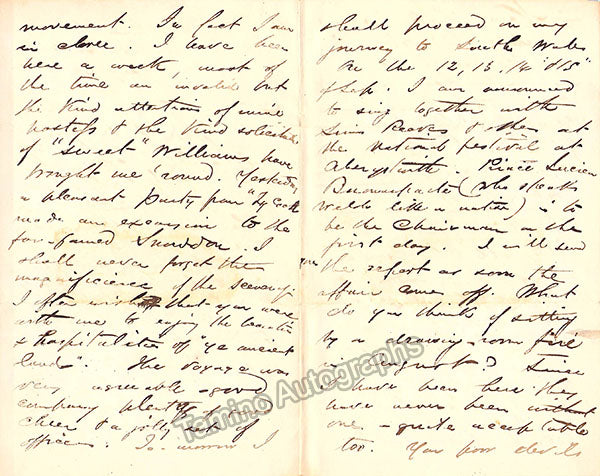 movement. In fact I am
in clover. I have been
here a week, most of
the time an invalid but
the kind attentions of mine
hostess & the kind solicitude
of "Sweet" Williams have
brought me 'round. Yesterday
a pleasant party from
made an excursion to the
far-famed Snowdon. I
shall never forget the
magnificence of the scenery
I often wish that you were
with me to enjoy the beauties
& hospitalities of "ye ancient
land". The voyage was
very agreeable - good
company plenty of good
cheer & a jolly set of
officers. To-morrow I
shall proceed on my
journey to South Wales
On the 12, 13, 14 & 15"
of Sept. I am announced
to sing together with
Sims Reeves & others at
the National Festival at
Aberystwith. Prince Lucien
Buonaparte (who speaks
Welsh like a native) is to
be the Chairman on the
first day. I will send
you the report as soon the
affair comes off. What
do you think of sitting
by a drawing-room fire
in August? Since
I have been here they
have never been without
one - quite acceptable
too. You poor devils
Tamino Autographs